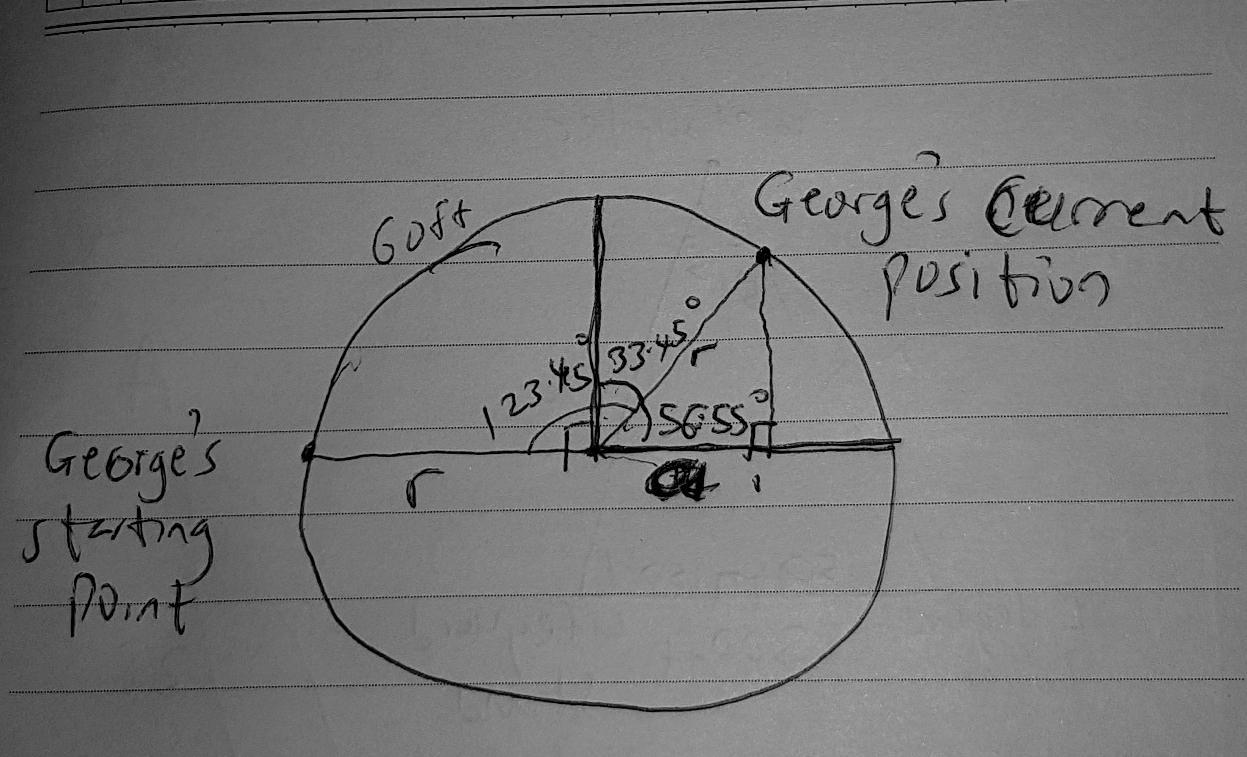 60ft
George's Current
position
123.45°
33.45°
r
56.55°
George's
starting
point
r